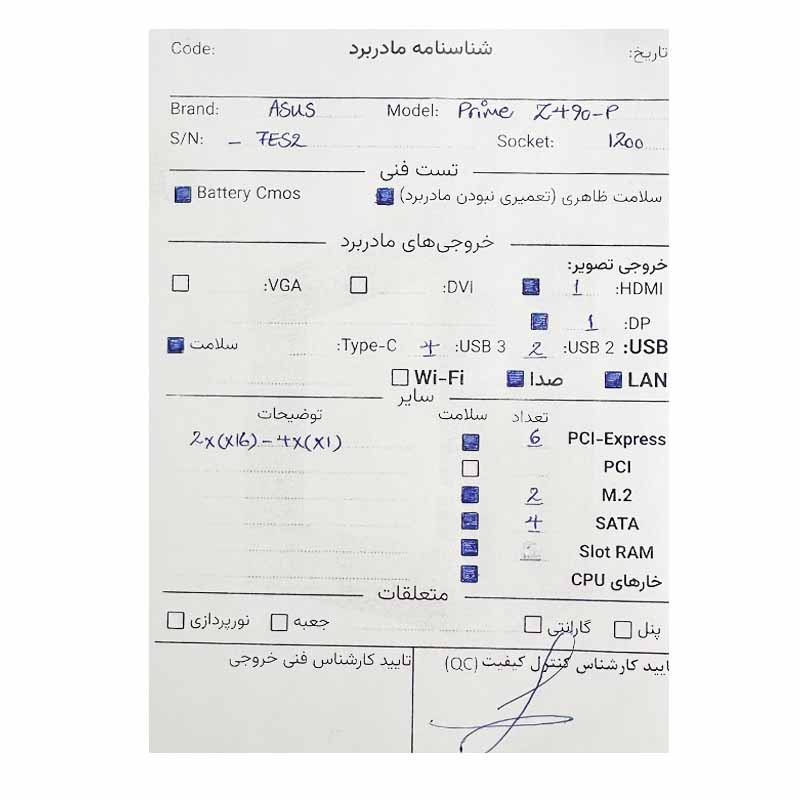 Code: شناسنامه مادربرد تاریخ:
Brand: ASUS Model: Prime Z490-P
S/N: - 7ES2 Socket: 1200
تست فنی
سلامت ظاهری (تعمیری نبودن مادربرد) Battery Cmos
خروجی‌های مادربرد
خروجی تصویر:
HDMI: 1 DVI: VGA:
DP: 1
USB: USB 2: 2 USB 3: 4 Type-C: سلامت
LAN صدا Wi-Fi
سایر
تعداد سلامت توضیحات
PCI-Express 6 2x(x16) - 4x(x1)
PCI
M.2 2
SATA 4
Slot RAM
خارهای CPU
متعلقات
پنل گارانتی جعبه نورپردازی
تایید کارشناس کنترل کیفیت (QC) تایید کارشناس فنی خروجی